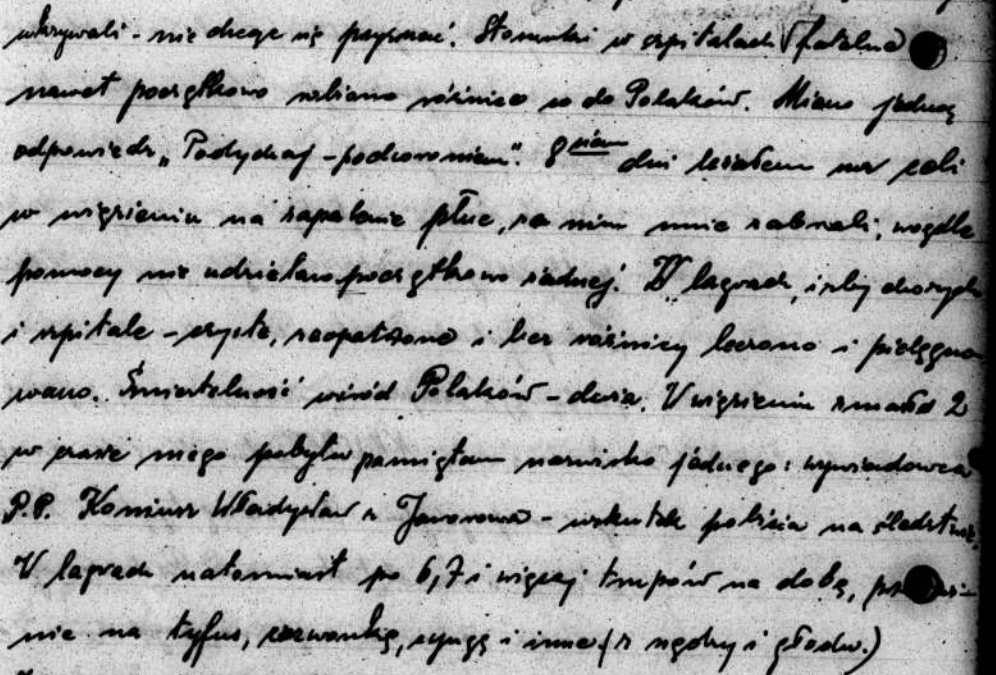 ukrywali - nie chcąc się przyznać. Stosunki w szpitalach fatalne
nawet początkowo robiono różnice co do Polaków. Miano jedną
odpowiedź „Podychaj - podworoniem". 8 dni leżałem w celi
w więzieniu na zapalenie płuc, za nim mnie zabrali, wogóle
pomocy nie udzielano początkowo żadnej. W łagrach, izby chorych
i szpitale - czyste, zaopatrzone i bez różnicy leczono i pielęgno
wano. Śmiertelność wśród Polaków - duża. W więzieniu zmarło 2
w czasie mego pobytu pamiętam nazwisko jednego: wywiadowca
P.P. Władysław z Jaworowa - wskutek pobicia na śledztwie.
W łagrach natomiast po 6, 7 i więcej trupów na dobę,
nie na tyfus, czerwonkę, cyngę i inne (z nędzy i głodu.)